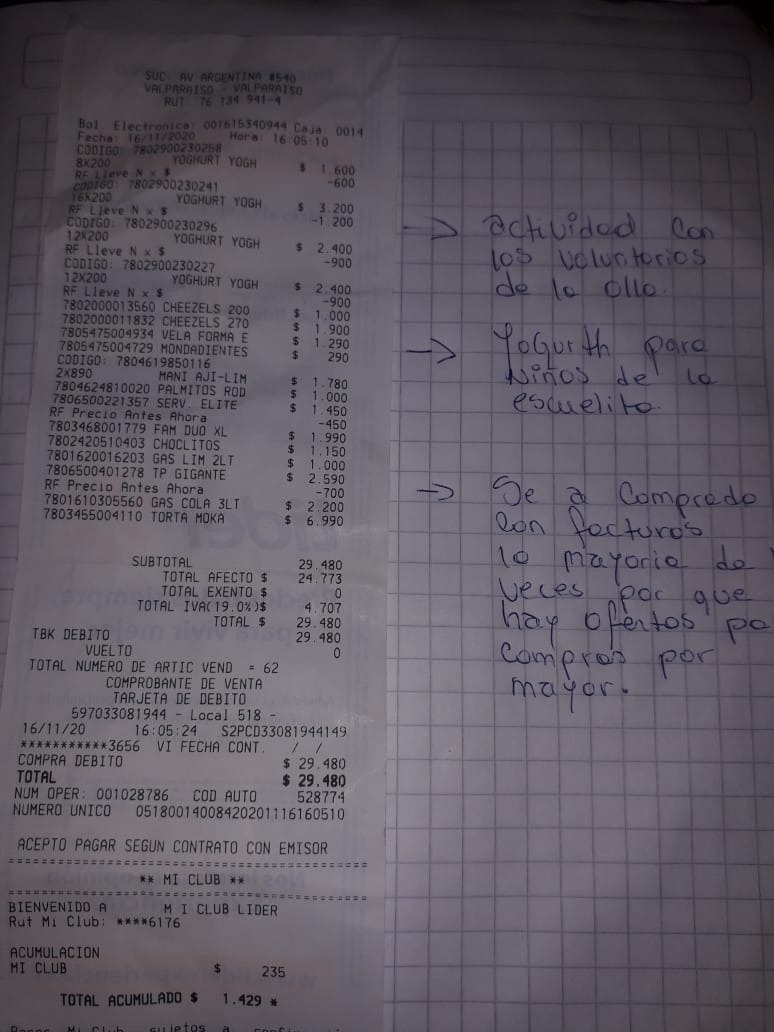 SUC: AV ARGENTINA #540
VALPARAISO - VALPARAISO
RUT: 76.134.941-4
Bol. Electronica: 001615340944 Caja: 0014
Fecha: 16/11/2020 Hora: 16:05:10
CODIGO: 7802900230258
8X200 YOGHURT YOGH $ 1.600
RF Lleve N x $ -600
CODIGO: 7802900230241
16X200 YOGHURT YOGH $ 3.200
RF Lleve N x $ -1.200
CODIGO: 7802900230296
12X200 YOGHURT YOGH $ 2.400
RF Lleve N x $ -900
CODIGO: 7802900230227
12X200 YOGHURT YOGH $ 2.400
RF Lleve N x $ -900
7802000013560 CHEEZELS 200 $ 1.000
7802000011832 CHEEZELS 270 $ 1.900
7805475004934 VELA FORMA E $ 1.290
7805475004729 MONDADIENTES $ 290
CODIGO: 7804619850116
2X890 MANI AJI-LIM $ 1.780
7804624810020 PALMITOS ROD $ 1.000
7806500221357 SERV. ELITE $ 1.450
RF Precio Antes Ahora -450
7803468001779 FAM DUO XL $ 1.990
7802420510403 CHOCLITOS $ 1.150
7801620016203 GAS LIM 2LT $ 1.000
7806500401278 TP GIGANTE $ 2.590
RF Precio Antes Ahora -700
7801610305560 GAS COLA 3LT $ 2.200
7803455004110 TORTA MOKA $ 6.990
SUBTOTAL 29.480
TOTAL AFECTO $ 24.773
TOTAL EXENTO $ 0
TOTAL IVA(19.0%)$ 4.707
TOTAL $ 29.480
TBK DEBITO 29.480
VUELTO 0
TOTAL NUMERO DE ARTIC VEND = 62
COMPROBANTE DE VENTA
TARJETA DE DEBITO
597033081944 - Local 518 -
16/11/20 16:05:24 S2PCD33081944149
***********3656 VI FECHA CONT. / /
COMPRA DEBITO $ 29.480
TOTAL $ 29.480
NUM OPER: 001028786 COD AUTO 528774
NUMERO UNICO 05180014008420201116160510
ACEPTO PAGAR SEGUN CONTRATO CON EMISOR
** MI CLUB **
BIENVENIDO A M I CLUB LIDER
Rut Mi Club: ****6176
ACUMULACION
MI CLUB $ 235
TOTAL ACUMULADO $ 1.429 *
→ actividad con
los voluntarios
de la olla.
→ Yogurth para
Niños de la
escuelita.
→ Se a Comprado
con facturas
la mayoria de
veces por que
hay ofertas pa
compras por
mayor.